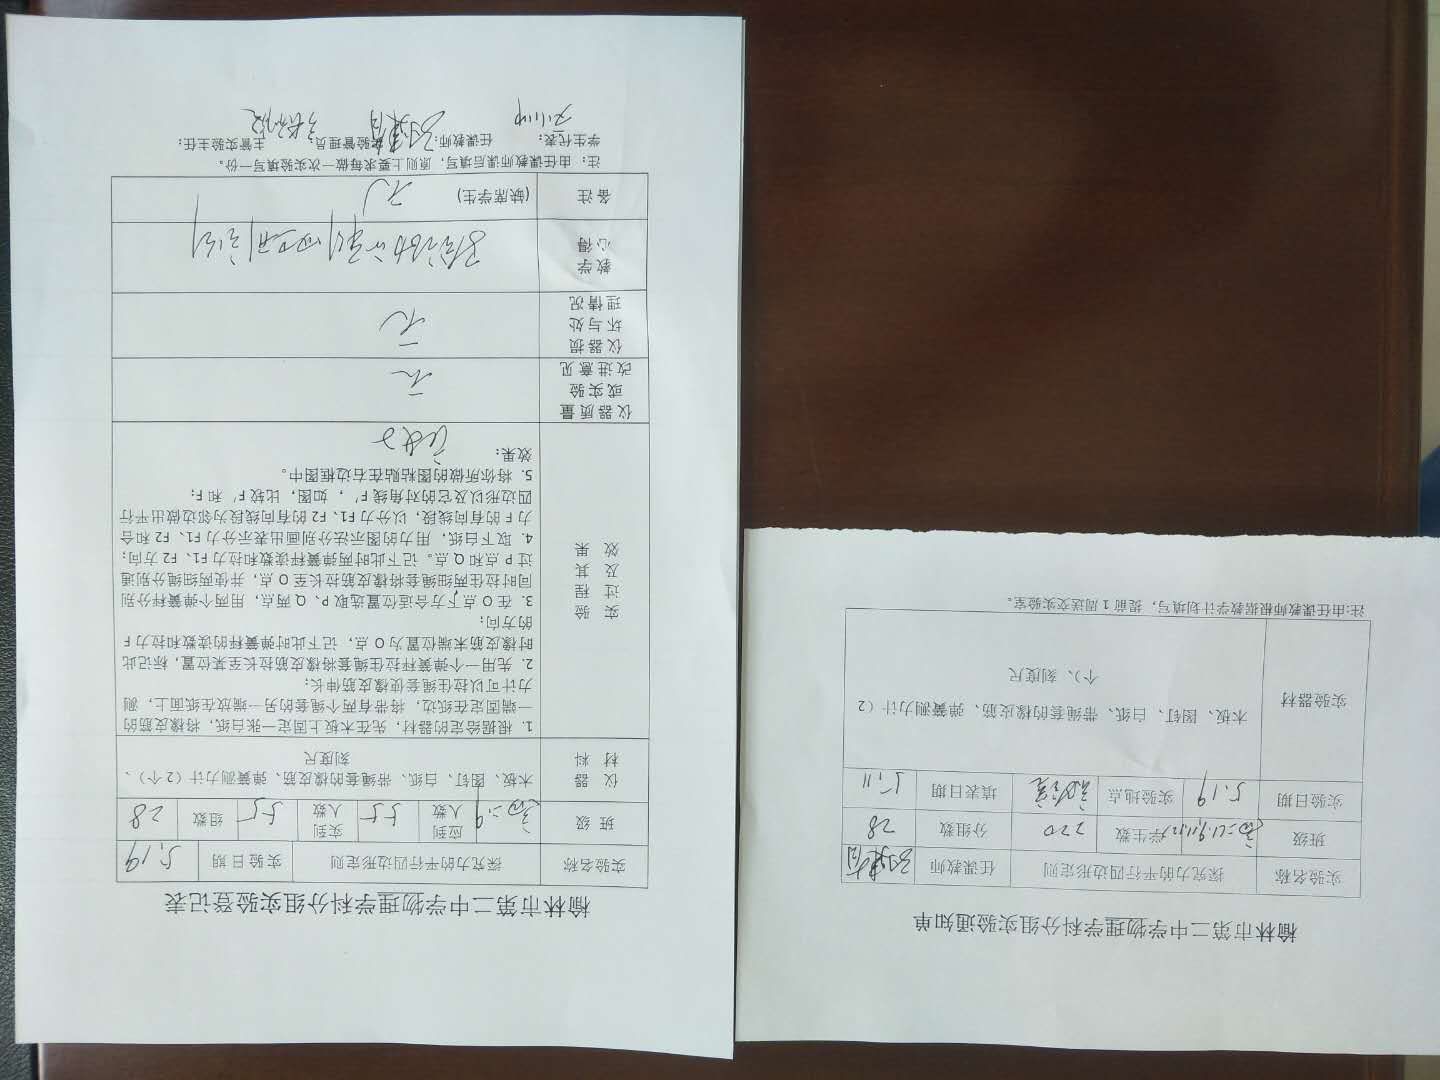 榆林市第二中学物理学科分组实验登记表
实验名称 探究力的平行四边形定则 实验日期 5.19
班级 应到人数 55 实到人数 55 组数 28
仪器材料 木板、图钉、白纸、带绳套的橡皮筋、弹簧测力计（2个）、
刻度尺
实验过程及其效果
1. 根据给定的器材，先在木板上固定一张白纸，将橡皮筋的
一端固定在纸边，将带有两个绳套的另一端放在纸面上，测
力计可以拉住绳套使橡皮筋伸长；
2. 先用一个弹簧秤拉住绳套将橡皮筋拉长至某位置，标记此
时橡皮筋末端位置为 O 点，记下此时弹簧秤的读数和拉力 F
的方向；
3. 在 O 点下方合适位置选取 P、Q 两点，用两个弹簧秤分别
同时拉住两细绳套将橡皮筋拉长至 O 点，并使两细绳分别通
过 P 点和 Q 点。记下此时两弹簧秤读数和拉力 F1、F2 方向；
4. 取下白纸，用力的图示法分别画出表示分力 F1、F2 和合
力 F 的有向线段，以分力 F1、F2 的有向线段为邻边做出平行
四边形以及它的对角线 F′，如图，比较 F′ 和 F；
5. 将你所做的图粘贴在右边图框中。
效果：
仪器质量或实验改进意见 无
仪器损坏与处理情况 无
教学心得
备注 (缺席学生) 无
注：由任课教师课后填写，原则上要求每做一次实验填写一份。
学生代表： 任课教师： 实验管理员： 主管实验主任：
榆林市第二中学物理学科分组实验通知单
实验名称 探究力的平行四边形定则 任课教师
班级 学生数 220 分组数 28
实验日期 5.19 实验地点 填表日期 5.11
实验器材 木板、图钉、白纸、带绳套的橡皮筋、弹簧测力计（2
个）、刻度尺
注:由任课教师根据教学计划填写，提前 1 周送交实验室。